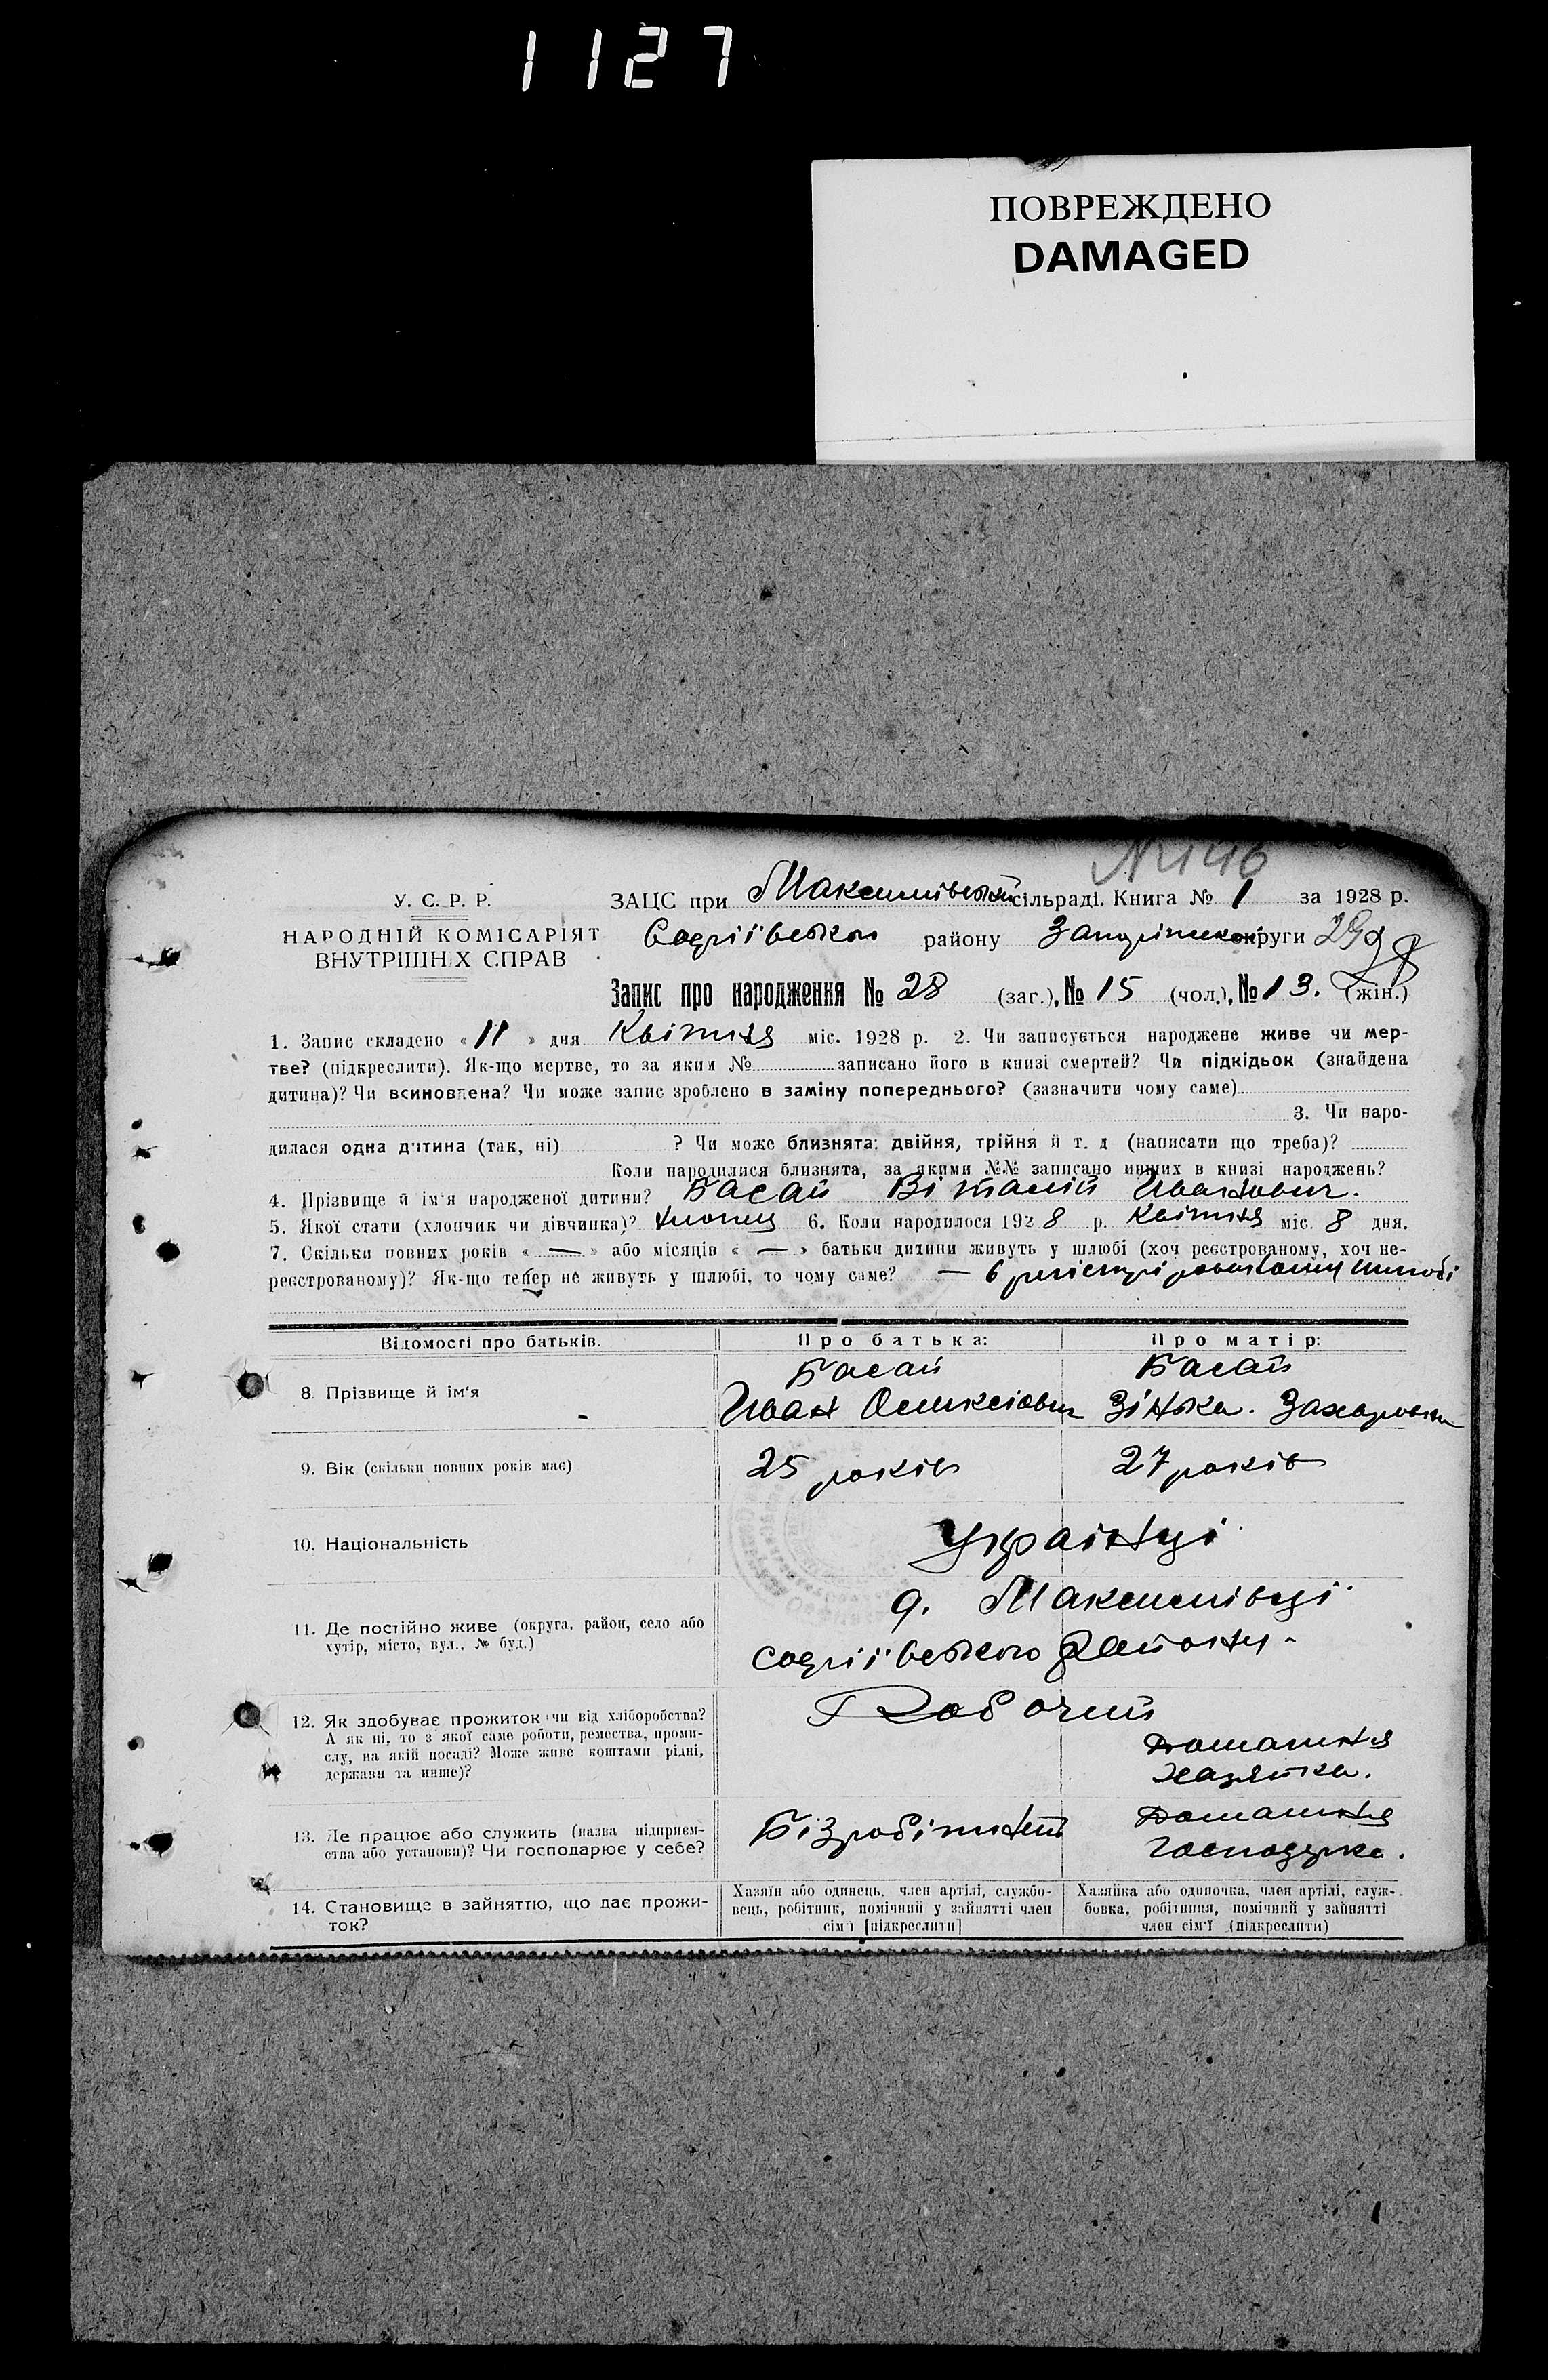 1127
ПОВРЕЖДЕНО
DAMAGED
№ 146
У. С. Р. Р.
НАРОДНІЙ КОМІСАРІЯТ
ВНУТРІШНІХ СПРАВ
ЗАЦС при Максимівській сільраді. Книга № 1 за 1928 р.
Софіївського району Запоріжськ округи
Запис про народження № 28 (заг.), № 15 (чол.), № 13. (жін.)
1. Запис складено « 11 » дня Квітня міс. 1928 р. 2. Чи записується народжене живе чи мер-
тве? (підкреслити). Як-що мертве, то за яким № записано його в книзі смертей? Чи підкідьок (знайдена
дитина)? Чи всиновлена? Чи може запис зроблено в заміну попереднього? (зазначити чому саме)
3. Чи наро-
дилася одна дитина (так, ні) ? Чи може близнята: двійня, трійня й т. д (написати що треба)?
Коли народилися близнята, за якими №№ записано инших в книзі народжень?
4. Прізвище й ім'я народженої дитини? Басай Віталій Иванович.
5. Якої стати (хлопчик чи дівчинка)? хлопець 6. Коли народилося 1928 р. Квітня міс. 8 дня.
7. Скільки повних років « — » або місяців « — » батьки дитини живуть у шлюбі (хоч реєстрованому, хоч не-
реєстрованому)? Як-що тепер не живуть у шлюбі, то чому саме? — в шлюбі
Відомості про батьків. Про батька: Про матір:
8. Прізвище й ім'я Басай Басай
Иван Олексіович Зінька. Захаровна
9. Вік (скільки повних років має) 25 років 27 років
10. Національність Українці
11. Де постійно живе (округа, район, село або
хутір, місто, вул., № буд.)
с. Максимівці
Софіївського Району.
12. Як здобуває прожиток (чи від хліборобства?
А як ні, то з якої саме роботи, ремества, проми-
слу, на якій посаді? Може живе коштами рідні,
держави та инше)?
Робочий
Домашня
Хазяйка.
13. Де працює або служить (назва підприєм-
ства або установи)? Чи господарює у себе?
Бізробітний
Домашня
Господарка.
14. Становище в зайняттю, що дає прожи-
ток?
Хазяїн або одинець, член артілі, службо-
вець, робітник, помічний у зайнятті член
сім'ї [підкреслити]
Хазяйка або одиночка, член артілі, служ-
бовка, робітниця, помічний у зайнятті
член сім'ї (підкреслити)